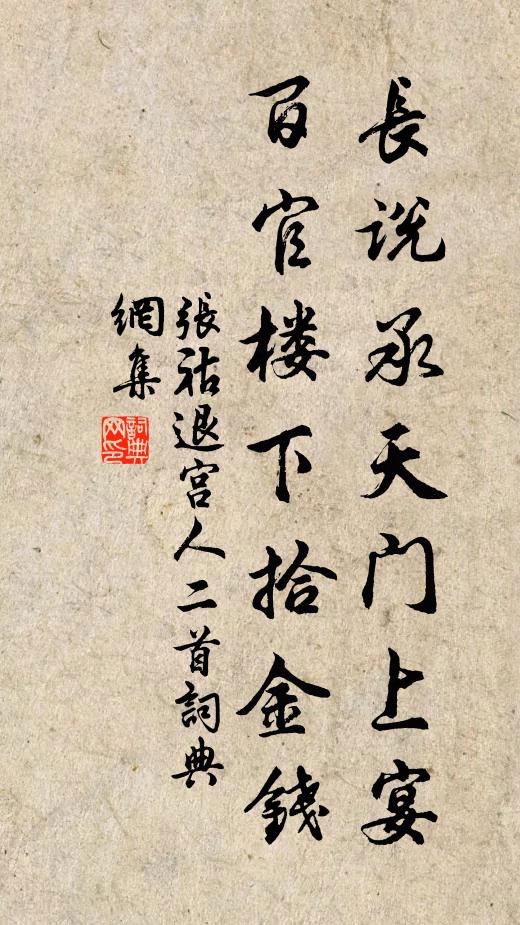 長说承天门上宴
百官楼下拾金錢
張祜退宫人二首詞典
網集
詞典
网印